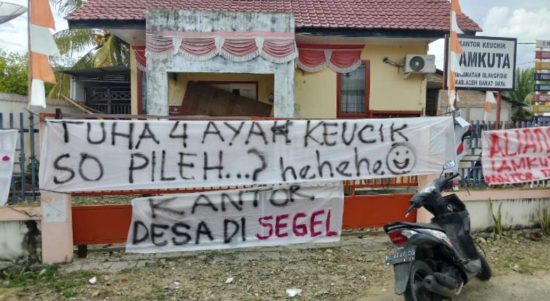 KANTOR KEUCHIK
LAMKUTA
KAB. ACEH BARAT DAYA
TUHA 4 AYAH KEUCIK
SO PILEH...? hehehe☺
KANTOR
DESA DI SEGEL